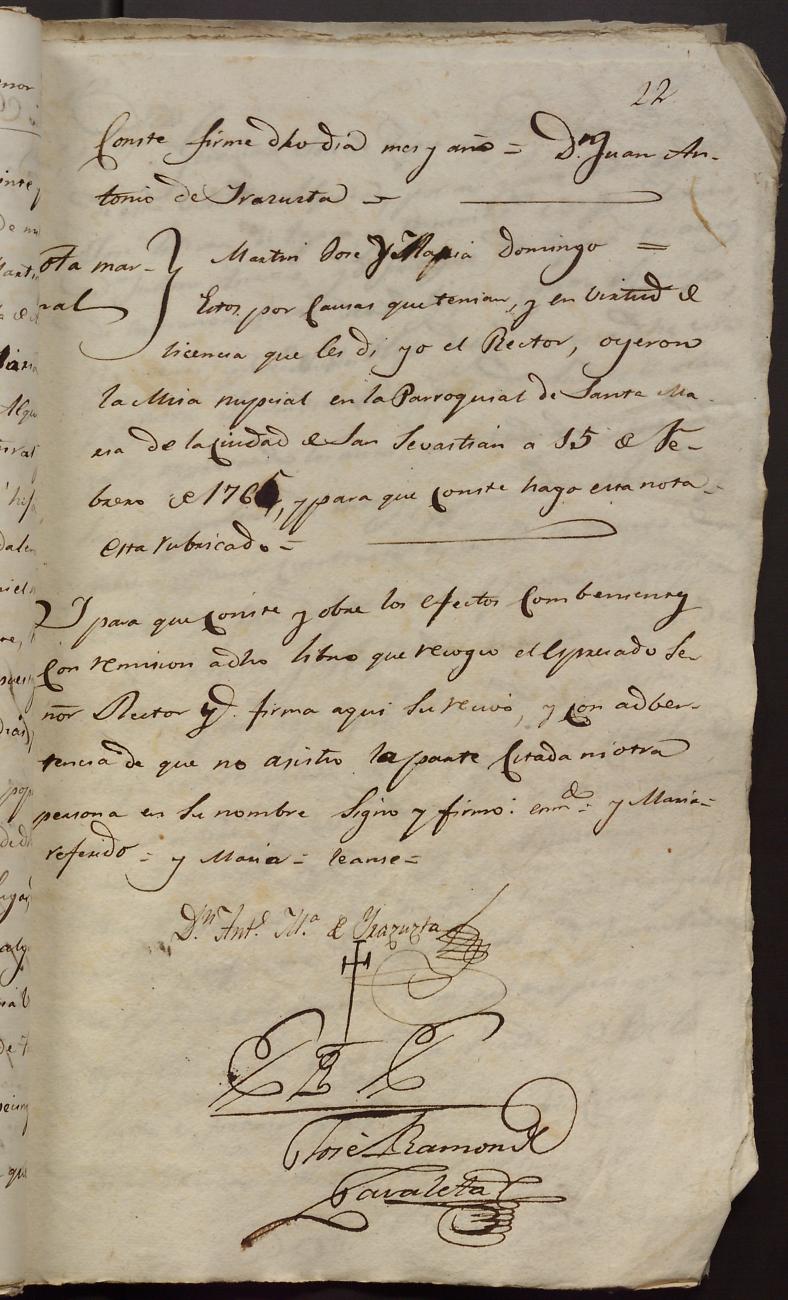 22
Conste firme dho dia mes y año = Dn Juan An-
tonio de Yrazuzta =
ota mar- Martin Jose y Maria Domingo =
nal Estos por Causas que tenian, y en virtud de
licencia que les di yo el Rector, oyeron
la Misa nupcial en la Parroquial de Santa Ma-
ria de la Ciudad de San Sevastian a 15 de Fe-
brero de 1765, y para que Conste hago esta nota =
esta rubricado =
Y para que Conste y obre los efectos Combenientes
Con remision a dho libro que recogio el Espresado Se-
ñor Rector y firma aqui su recivo, y Con adber-
tencia de que no asistio la parte Citada ni otra
persona en su nombre Signo y firmo: enmdo = y Maria =
referido = y Maria = leanse =
Dn Anto Ma de Yrazuzta
Josè Ramon de
Zavaleta